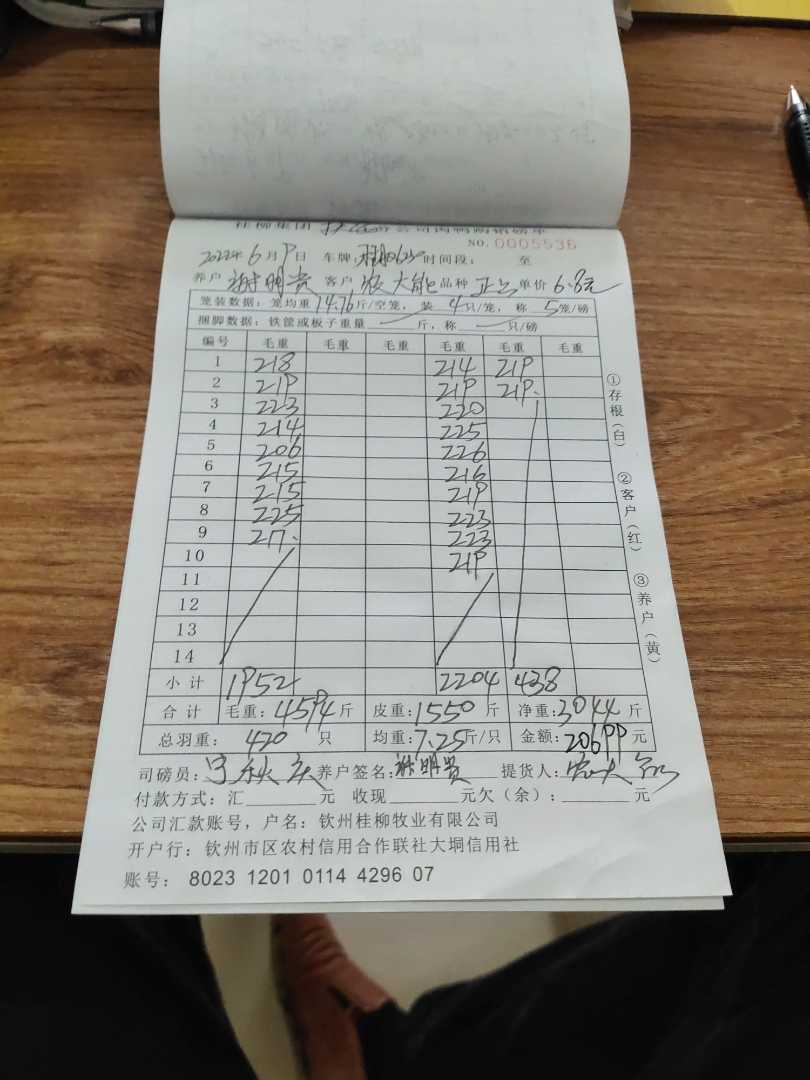 桂柳集团
NO. 0005536
2022年6月9日 车牌: 时间段: 至
养户 谢明贵 客户 农大能 品种 单价 6.8元
笼装数据: 笼均重 14.76 斤/空笼, 装 4 只/笼, 称 5 笼/磅
捆脚数据: 铁筐或板子重量 斤, 称 只/磅
编号 毛重 毛重 毛重 毛重 毛重 毛重
1 218 214 219
2 219 219 219
3 223 220
4 214 225
5 206 226
6 215 216
7 215 219
8 225 223
9 217 223
10 219
11
12
13
14
小计 1952 2204 438
合计 毛重: 4594 斤 皮重: 1550 斤 净重: 3044 斤
总羽重: 420 只 均重: 7.25 斤/只 金额: 20699 元
司磅员: 养户签名: 谢明贵 提货人: 农大能
付款方式: 汇 元 收现 元 欠(余): 元
公司汇款账号, 户名: 钦州桂柳牧业有限公司
开户行: 钦州市区农村信用合作联社大垌信用社
账号: 8023 1201 0114 4296 07
①存根(白)
②客户(红)
③养户(黄)